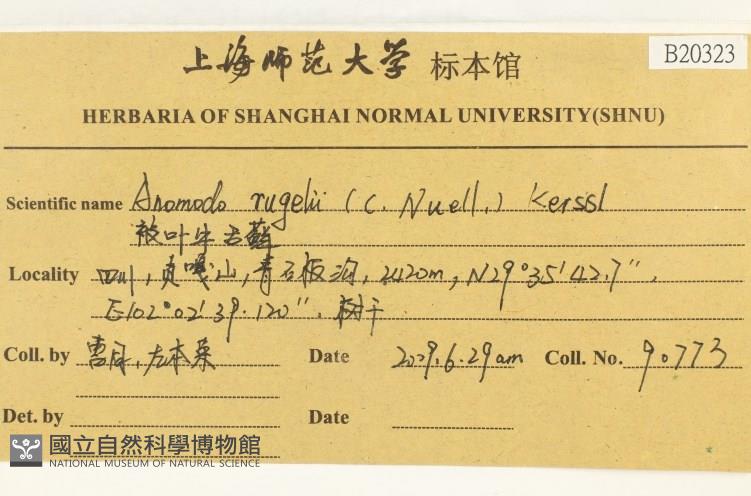 B20323
上海师范大学 标本馆
HERBARIA OF SHANGHAI NORMAL UNIVERSITY(SHNU)
Scientific name Anomodo rugelii (C. Muell.) Kerssl
皱叶牛舌藓
Locality 四川,贡嘎山,青石板沟,2420m,N29°35'42.7",
E102°02'39.120".树干
Coll. by 曹同,左本荣 Date 2009.6.29am Coll. No. 90773
Det. by Date
國立自然科學博物館
NATIONAL MUSEUM OF NATURAL SCIENCE